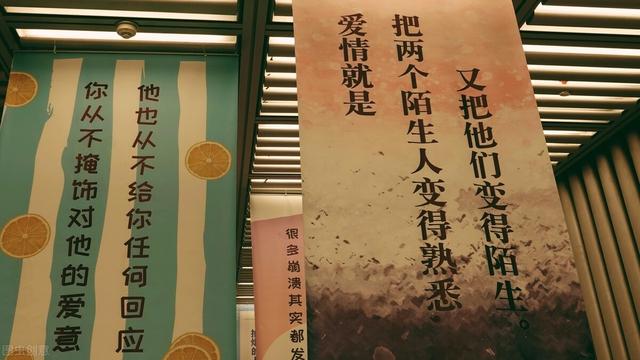 你从不掩饰对他的爱意
他也从不给你任何回应
很多崩溃其实都发
爱情就是
把两个陌生人变得熟悉
又把他们变得陌生。
图虫创意